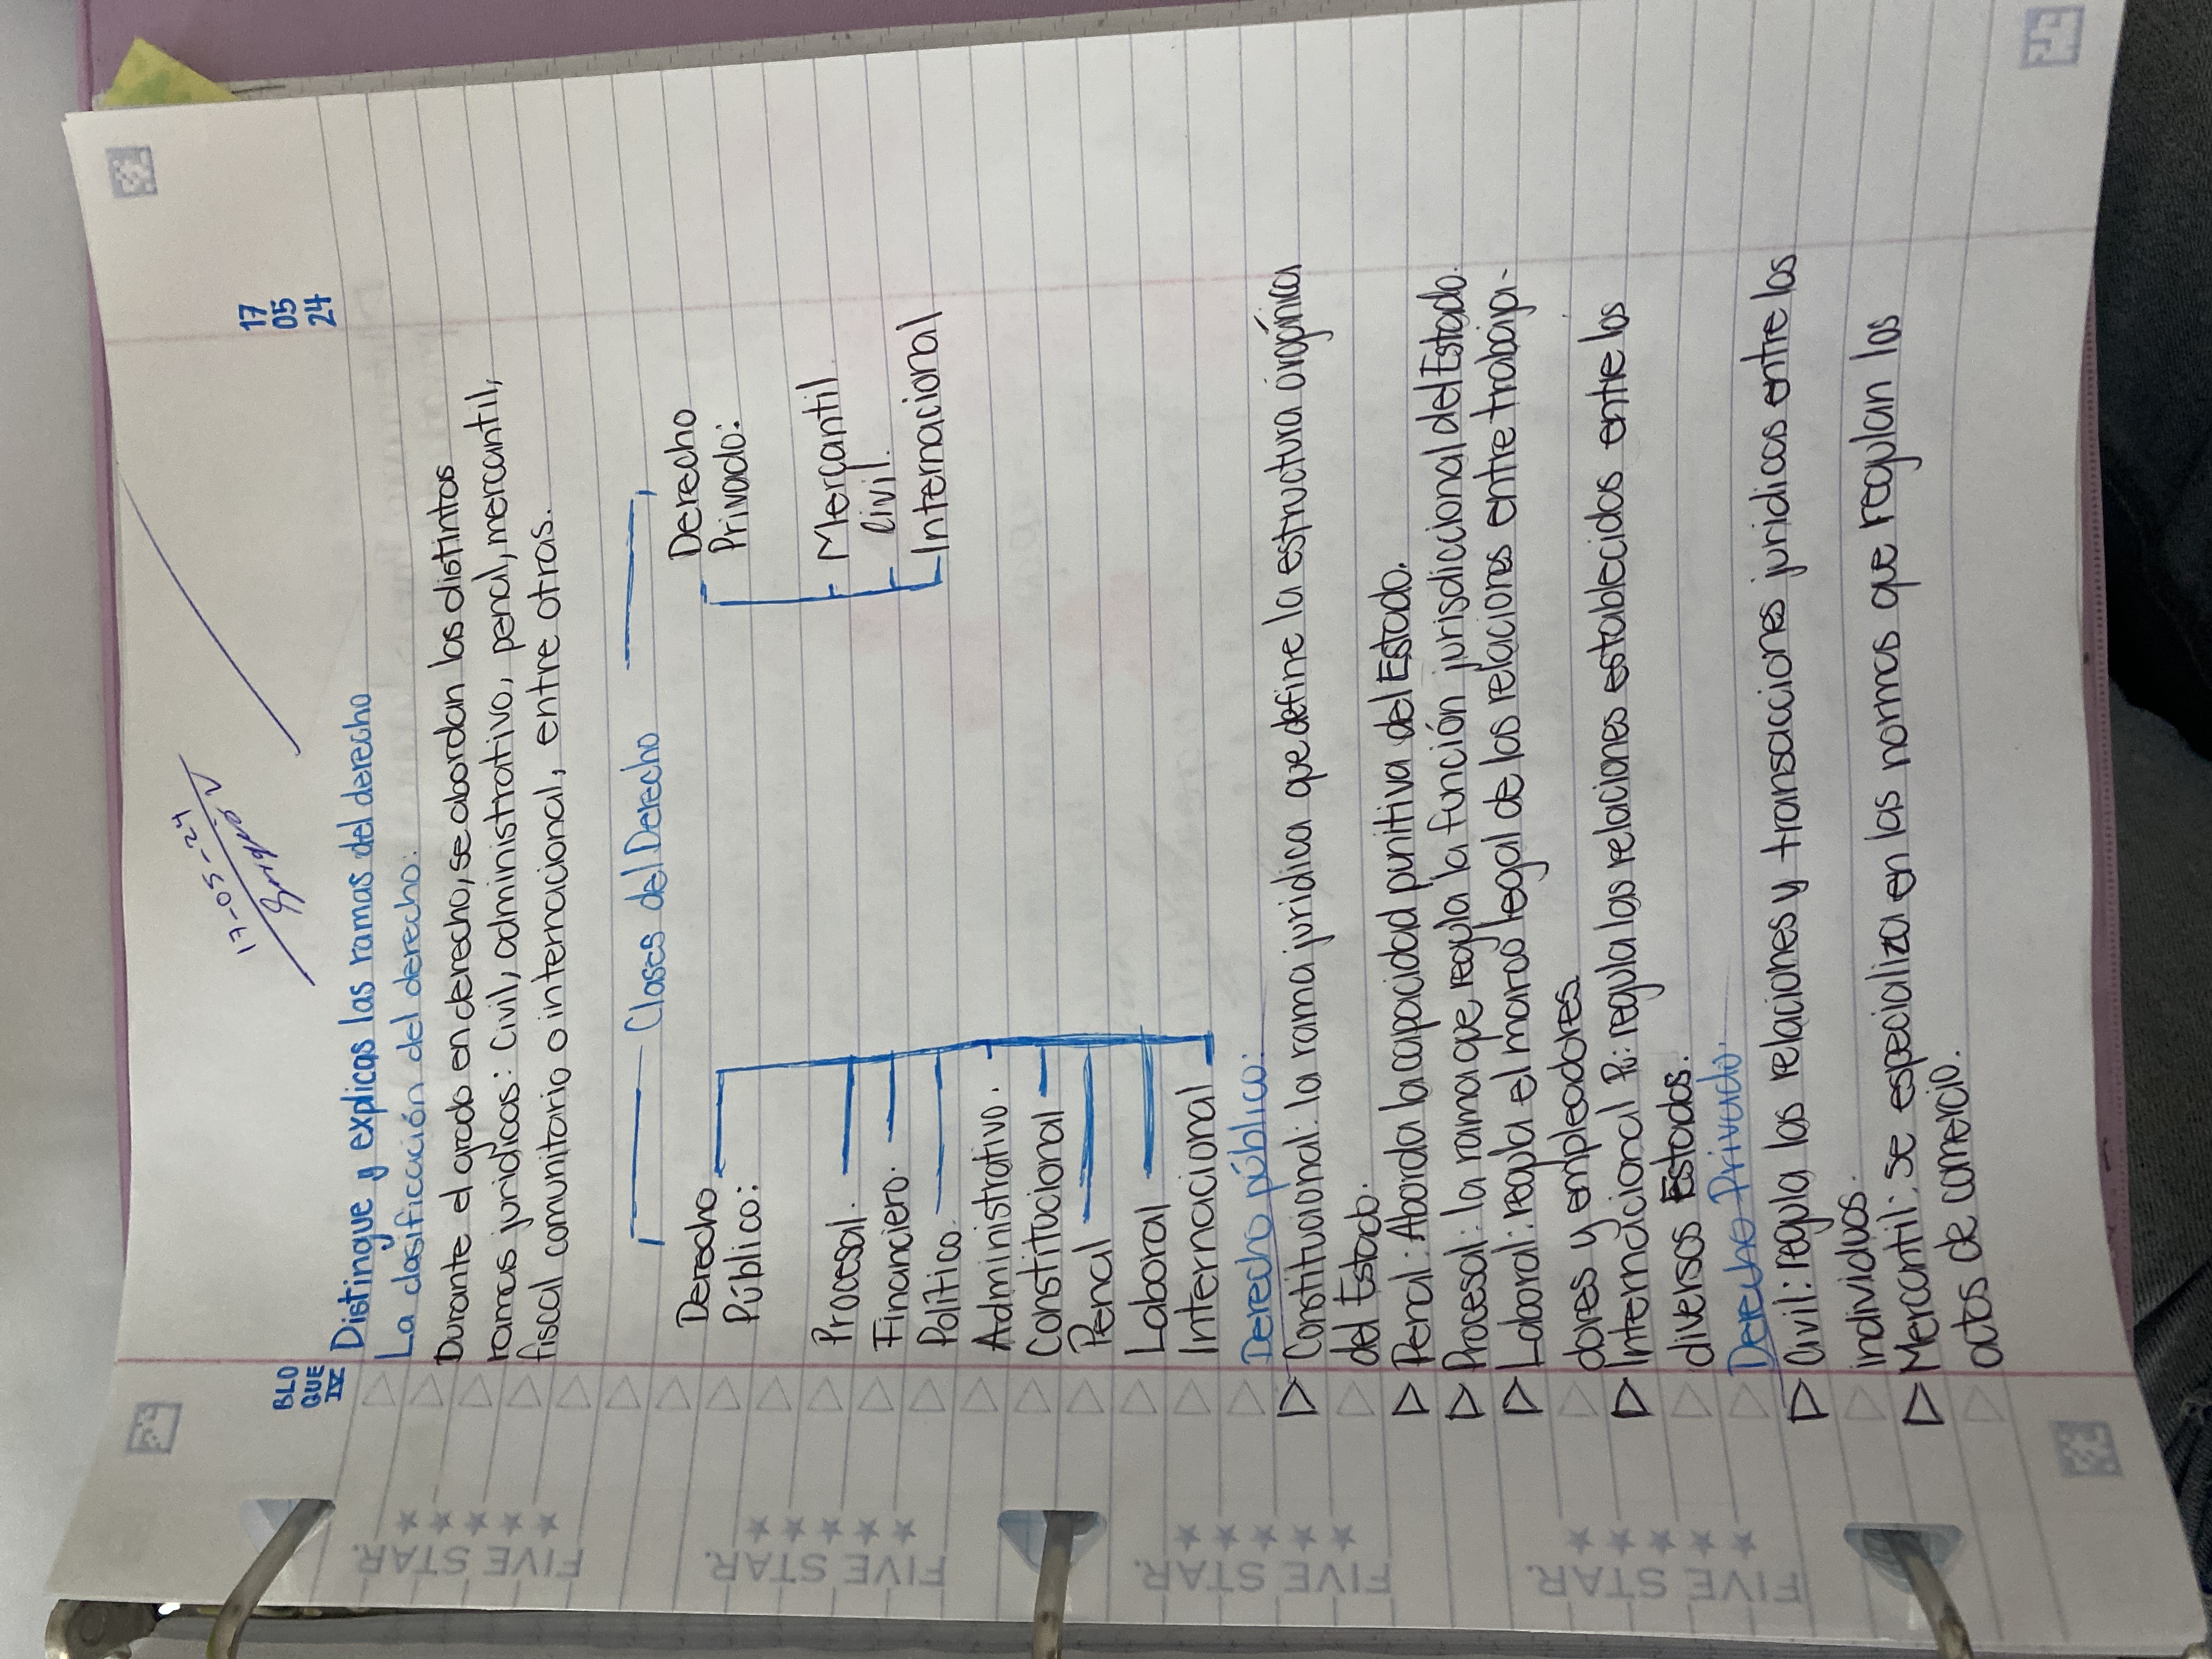 17-05-24
17
05
24
BLO
QUE
IV
Distingue y explicas las ramas del derecho
La clasificación del derecho.
Durante el grado en derecho, se abordan los distintos
ramas jurídicas: Civil, administrativo, penal, mercantil,
fiscal comunitario o internacional, entre otras.
Clases del Derecho
Derecho
Público:
Procesal.
Financiero.
Político.
Administrativo.
Constitucional
Penal
Laboral
Internacional
Derecho
Privado:
Mercantil
Civil.
Internacional
Derecho público:
Constitucional: la rama juridica que define la estructura orgánica
del Estado.
Penal: Aborda la capacidad punitiva del Estado.
Procesal: la rama que regula la función jurisdiccional del Estado.
Laboral: regula el marco legal de las relaciones entre trabaja-
dores y empleadores.
Internacional P.: regula las relaciones establecidos entre los
diversos Estados.
Derecho Privado:
Civil: regula las relaciones y transacciones juridicas entre los
individuos.
Mercantil: se especializa en las normas que regulan los
actos de comercio.
FIVE STAR.
FIVE STAR.
FIVE STAR.
FIVE STAR.